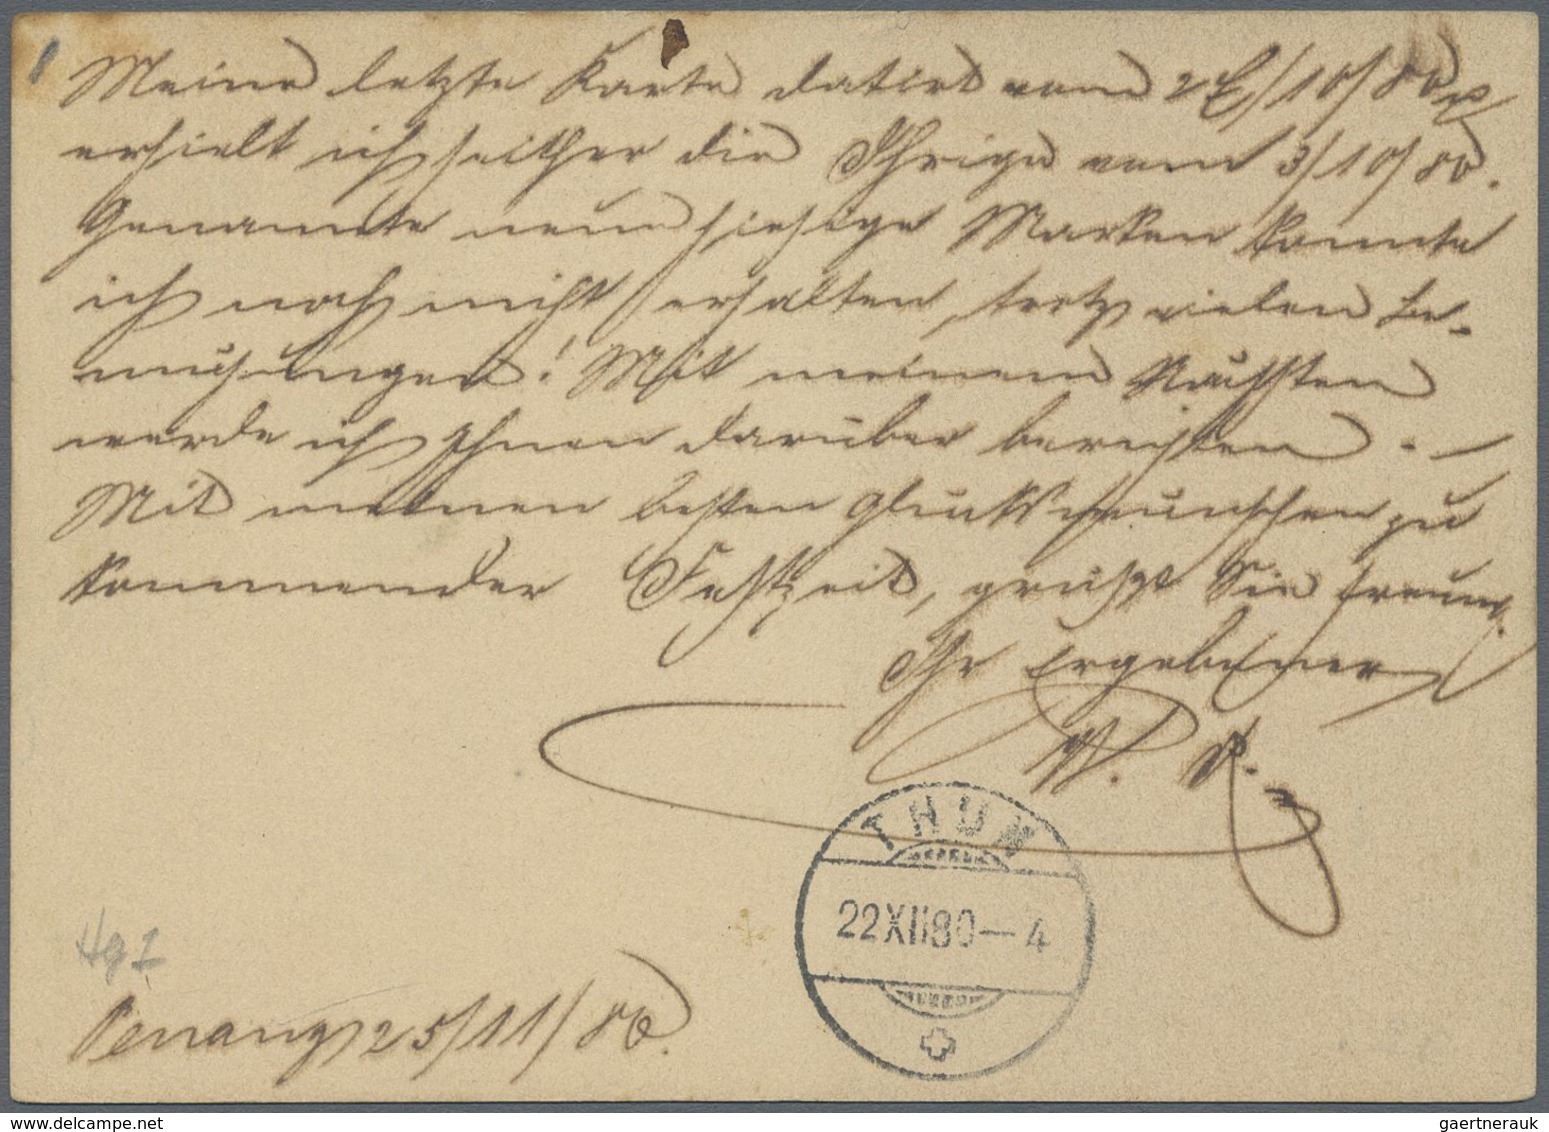 Meine letzte Karte datirt vom 2[?]/10/80 &
erhielt ich seither die Ihrige vom 3/10/80.
Genannte neue hiesige Marken konnte
ich noch nicht erhalten, trotz vielen Be-
mühungen! Mit meinem Nächsten
werde ich Ihnen darüber berichten. –
Mit meinen besten Glückwünschen zu
kommender Festzeit, grüsst Sie freund.
Ihr Ergebener
THUN
22XII80–4
Hg 1
Penang 25/11/80.
gaertnerauk@delcampe.net